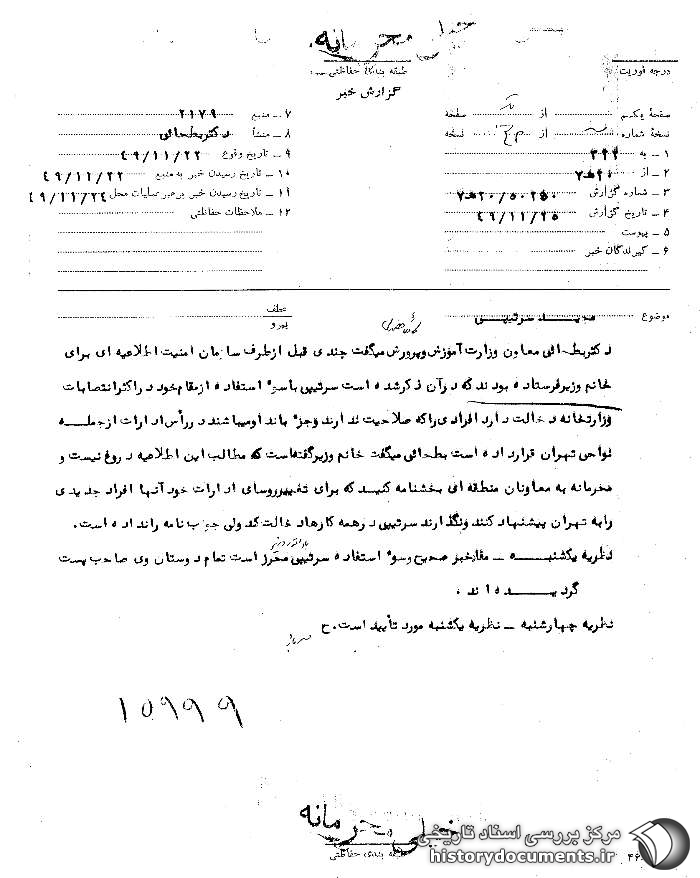 خیلی محرمانه
طبقه بندی حفاظتی
درجه فوریت
گزارش خبر
صفحه یکم از یک صفحه
نسخه شماره از نسخه
۱ – به ۳۴۲
۲ – از ۲۰ھ۷
۳ – شماره گزارش ۲۰/۵۰۲۵۰ھ۷
۴ – تاریخ گزارش ۴۹/۱۱/۲۵
۵ – پیوست
۶ – گیرندگان خبر
۷ – منبع ۲۱۷۹
۸ – منشأ دکتربطحائی
۹ – تاریخ وقوع ۴۹/۱۱/۲۲
۱۰ – تاریخ رسیدن خبر به منبع ۴۹/۱۱/۲۲
۱۱ – تاریخ رسیدن خبر برهبر عملیات محل ۴۹/۱۱/۲۴
۱۲ – ملاحظات حفاظتی
موضوع سرتیپی
عطف
پیرو
دکتربطحائی معاون وزارت آموزش وپرورش میگفت چندی قبل ازطرف سازمان امنیت اطلاعیه ای برای
خانم وزیرفرستاده بودند که درآن ذکرشده است سرتیپی باسوء استفاده ازمقام خود دراکثرانتصابات
وزارتخانه دخالت دارد افرادی راکه صلاحیت ندارند وجزء باند اومیباشند درراس ادارات ازجمله
نواحی تهران قرارداده است بطحائی میگفت خانم وزیرگفته است که مطالب این اطلاعیه دروغ نیست و
محرمانه به معاونان منطقه ای بخشنامه کنید که برای تغییرروسای ادارات خود آنها افراد جدیدی
رابه تهران پیشنهاد کنند ونگذارند سرتیپی درهمه کارهادخالت کند ولی جواب نامه رانداده است.
نظریه یکشنبه – مفادخبر صحیح وسوء استفاده سرتیپی محرز است تمام دوستان وی صاحب پست
گردیده اند.
نظریه چهارشنبه – نظریه یکشنبه مورد تأیید است. ح
۱۵۹۹۹
خیلی محرمانه
طبقه بندی حفاظتی
مرکز بررسی اسناد تاریخی
historydocuments.ir